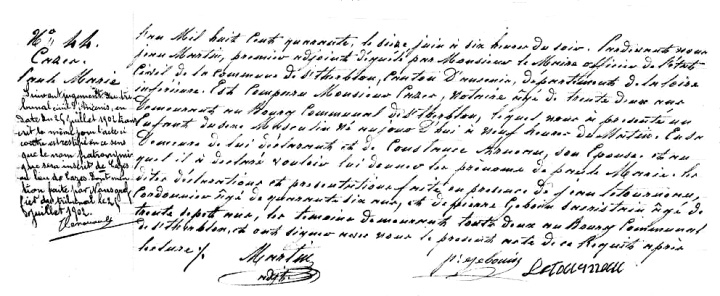 No 44
Cazes
Paule Marie
Suivant jugement du tri
bunal civil d'Ancenis, en
date du 25 juillet 1902 trans
crit le même jour l'acte ci
contre est rectifié en ce sens
que le nom patronymi
que sera inscrit de
au lieu de Cazes. Dont men
tion faite par Nous gref
fier du tribunal le
juillet 1902.
L'an Mil huit Cent quarante, le seize juin à six heures du soir. Pardevant nous
jean Martin, premier adjoint délégué par Monsieur le Maire officier de l'état
Civil de la Commune de st herblon, Canton D'ancenis, département de la Loire
inferieure. Est Comparu Monsieur Cazes, Notaire âgé de trente deux ans
Demeurant au Bourg Communal de st herblon, lequel nous à presenté un
Enfant du sexe Masculin né aujourd'hui à neuf heures du Matin. En sa
Demeure de lui déclarant et de Constance son Epouse. et au
quel il à declaré vouloir lui donner les prenoms de paule Marie. les
dites déclarations et presentations faites en presence de jean Letourneau,
Cordonnier âgé de quarante six ans, et de pierre Gebouin Sacristain âgé de
trente sept ans, les témoins demeurant toute deux au Bourg Communal
de st herblon, et ont signé avec nous le present acte de ce Requis après
lecture /.
Martin
adjt.
pre gebouin
Letourneau